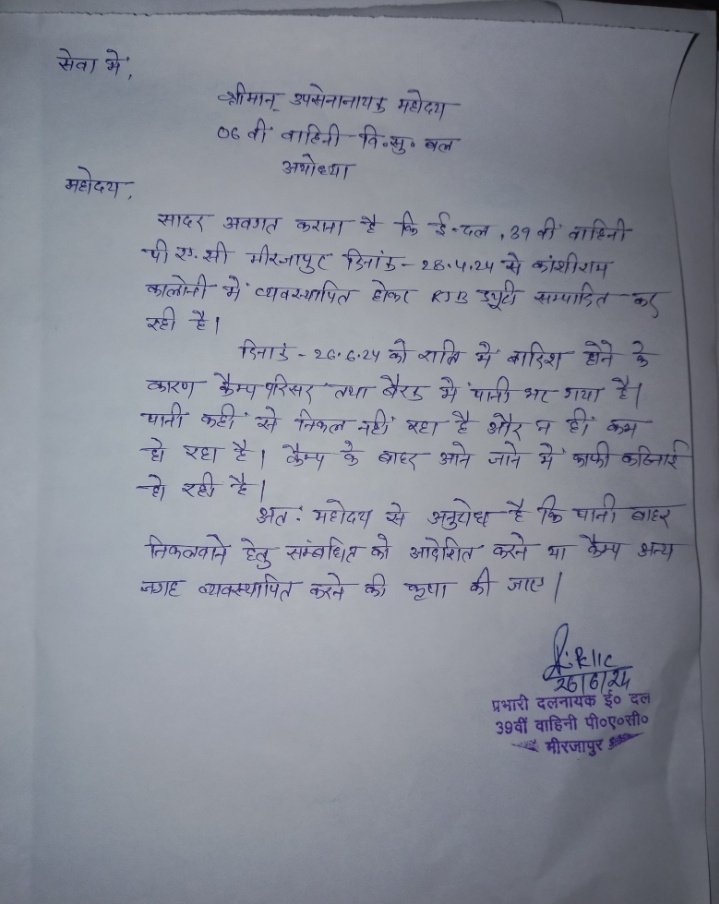 सेवा में,
श्रीमान् उपसेनानायक महोदय
06 वी वाहिनी वि०सु० बल
अयोध्या
महोदय,
सादर अवगत कराना है कि ई-दल, 39 वी वाहिनी
पी.ए.सी मीरजापुर दिनांक - 28.4.24 से कांशीराम
कालोनी में व्यवस्थापित होकर RJB ड्यूटी सम्पादित कर
रही है।
दिनांक - 26.6.24 को रात्रि में बारिश होने के
कारण कैम्प परिसर तथा बैरक में पानी भर गया है।
पानी कहीं से निकल नहीं रहा है और न हीं कम
हो रहा है। कैम्प के बाहर आने जाने में काफी कठिनाई
हो रही है।
अतः महोदय से अनुरोध है कि पानी बाहर
निकलवाने हेतु सम्बंधित को आदेशित करने या कैम्प अन्य
जगह व्यवस्थापित करने की कृपा की जाए।
26/6/24
प्रभारी दलनायक ई० दल
39वीं वाहिनी पी०ए०सी०
मीरजापुर